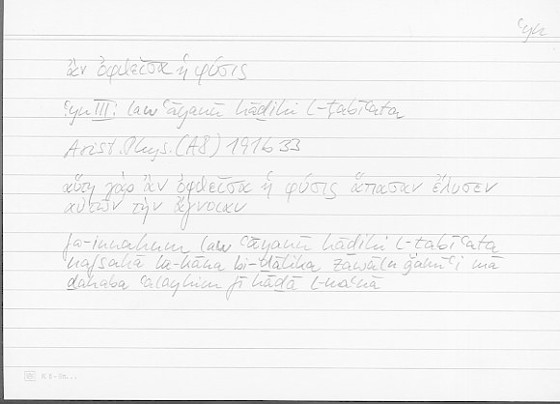 ʿyn
ἂν ὀφθεῖσα ἡ φύσις
ʿyn III: law ʿāyanū hāḏihi l-ṭabīʿata
Arist. Phys. (A8) 191b33
αὕτη γὰρ ἂν ὀφθεῖσα ἡ φύσις ἅπασαν ἔλυσεν
αὐτῶν τὴν ἄγνοιαν
fa-innahum law ʿāyanū hāḏihi l-ṭabīʿata
nafsahā la-kāna bi-ḏālika zawālu ǧamīʿi mā
ḏahaba ʿalayhim fī hāḏā l-maʿnā